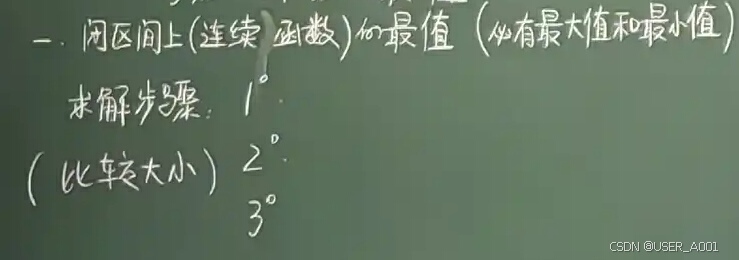 一. 闭区间上(连续函数)的最值 (必有最大值和最小值)
求解步骤: 1°.
(比较大小) 2°.
3°
CSDN @USER_A001